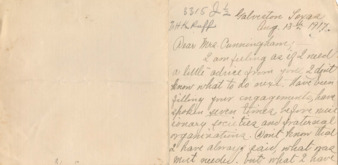 3315 J½
Galveston Texas
Aug. 13th 1917.
Dear Mrs. Cunningham;
I am feeling as if I need
a little advice from you, I don't
know what to do next. Have been
filling your engagements, have
spoken seven times, before mis-
sionary societies and fraternal
organizations. Don't know that
I have always said, what was
most needed, but what I have